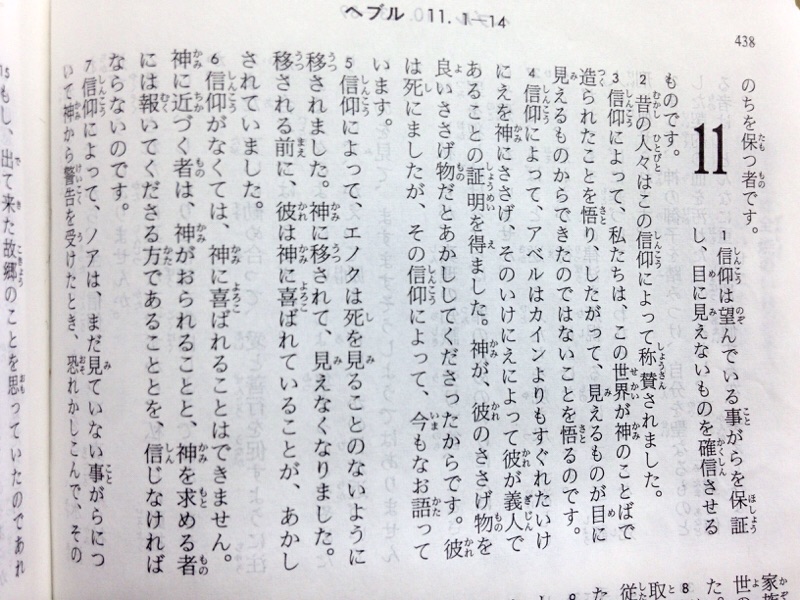 ヘブル 11. 1―14
438
のちを保つ者です。
11
1 信仰は望んでいる事がらを保証
し、目に見えないものを確信させる
ものです。
2 昔の人々はこの信仰によって称賛されました。
3 信仰によって、私たちは、この世界が神のことばで
造られたことを悟り、したがって、見えるものが目に
見えるものからできたのではないことを悟るのです。
4 信仰によって、アベルはカインよりもすぐれたいけ
にえを神にささげ、そのいけにえによって彼が義人で
あることの証明を得ました。神が、彼のささげ物を
良いささげ物だとあかししてくださったからです。彼
は死にましたが、その信仰によって、今もなお語って
います。
5 信仰によって、エノクは死を見ることのないように
移されました。神に移されて、見えなくなりました。
移される前に、彼は神に喜ばれていることが、あかし
されていました。
6 信仰がなくては、神に喜ばれることはできません。
神に近づく者は、神がおられることと、神を求める者
には報いてくださる方であることとを、信じなければ
ならないのです。
7 信仰によって、ノアは、まだ見ていない事がらにつ
いて神から警告を受けたとき、恐れかしこんで、その
家族
世の
た。
8
取
従
た
9
15 もし、出て来た故郷のことを思っていたのであれ